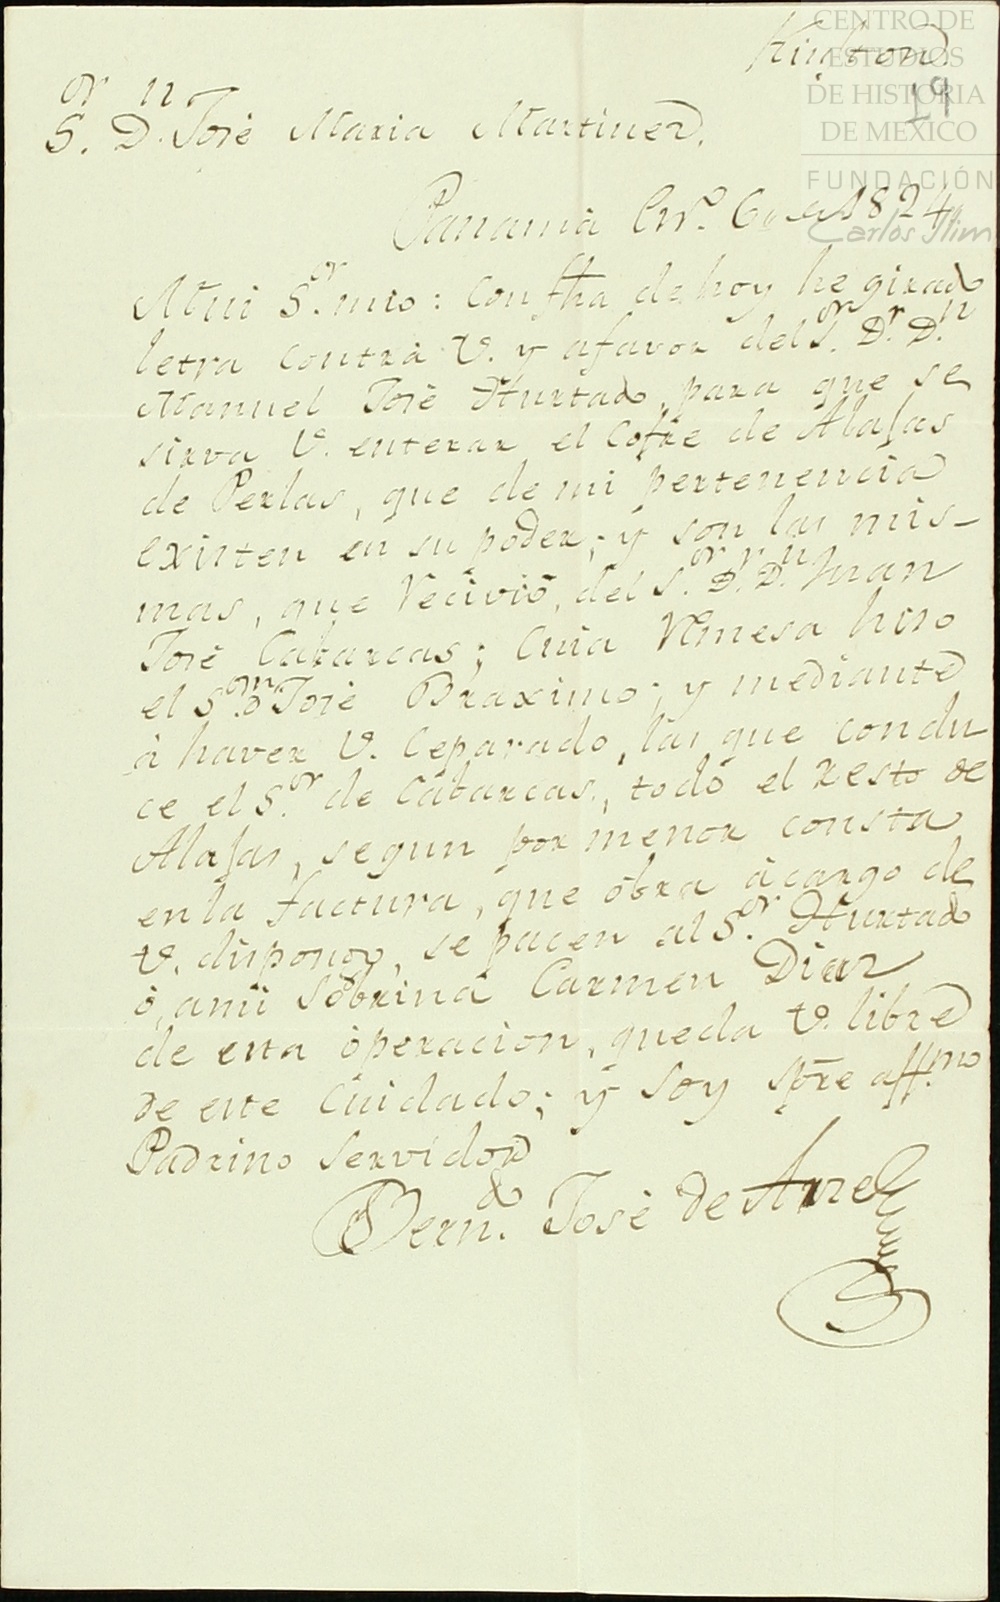 Kinston
CENTRO DE
ESTUDIOS
DE HISTORIA
DE MEXICO
FUNDACIÓN
Carlos Slim
19
S.or D.n José Maria Martinez.
Panamá En.º 6,, de 1824
Mui S.or mio: Con fha de hoy he girado
letra contra V. y afavor del S.or D.r D.n
Manuel José Hurtado, para que se
sirva V. enterar el Cofre de Alajas
de Perlas, que de mi pertenencia
existen en su poder; y son las mis-
mas, que recivió, del S.or D.r D.n Juan
José Cabarcas; Cuia Remesa hizo
el S.or D.n José Braximo; y mediante
á haver V. Ceparado, las que condu-
ce el S.or de Cabarcas, todo el resto de
Alajas, segun por menor consta
en la factura, que óbra á cargo de
V. dispongo, se pacen al S.or Hurtado
ó, a mi Sobrina Carmen Diaz
de esta óperacion, queda V. libre
de este Cuidado; y soy spre aff.mo
Padrino Servidor
Bern.do José de Arze